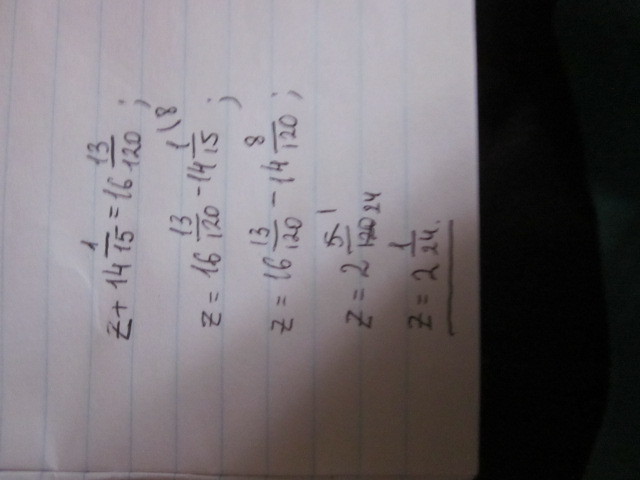 z + 14 1/15 = 16 13/120 ;
z = 16 13/120 - 14 1\8/15 ;
z = 16 13/120 - 14 8/120 ;
z = 2 5 1/120 24
z = 2 1/24.